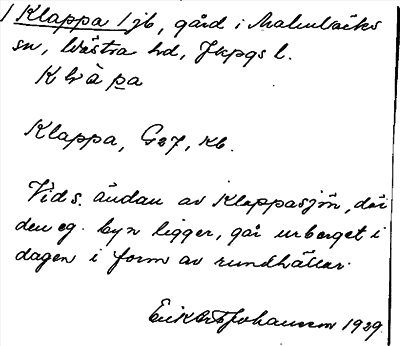 Klappa 1 jb, gård i Malmbäcks
sn, Västra hd, Jkpgs l.
Klàpa
Klappa, G27, kb.
Vid s. ändan av Klappasjön, där
den eg. byn ligger, går urberget i
dagen i form av rundhällar.
Erik Johansson 1929